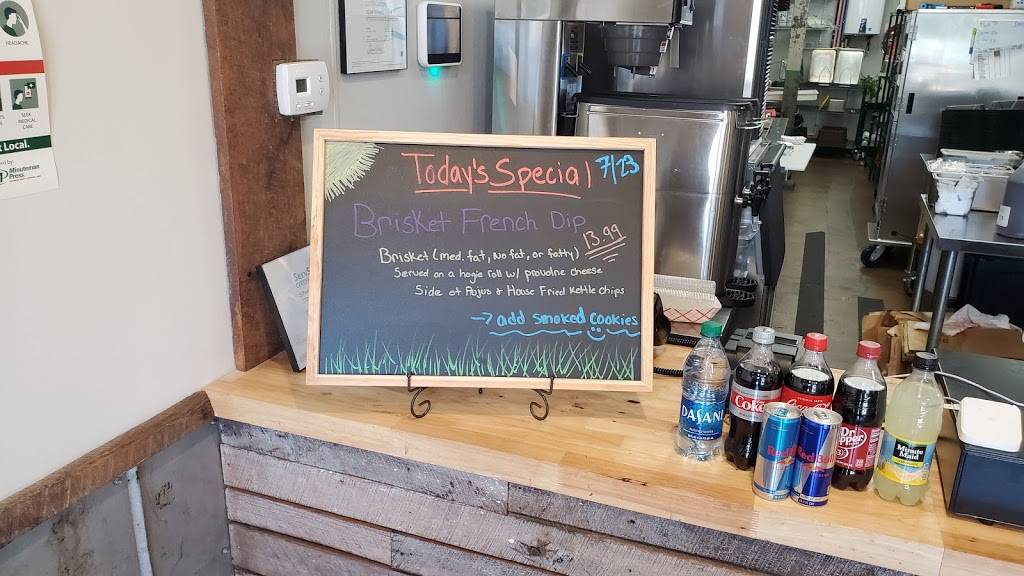 HEADACHE
SEEK
MEDICAL
CARE
Local.
Minuteman
Press
Today's Special 7/23
Brisket French Dip
13.99
Brisket (med. fat, No fat, or fatty)
Served on a hogie roll w/ proudne cheese
Side of Aojus & House Fried Kettle chips
→ add smoked cookies
DASANI
Coke
Dr
Pepper
23
Minute
Maid
Red Bull